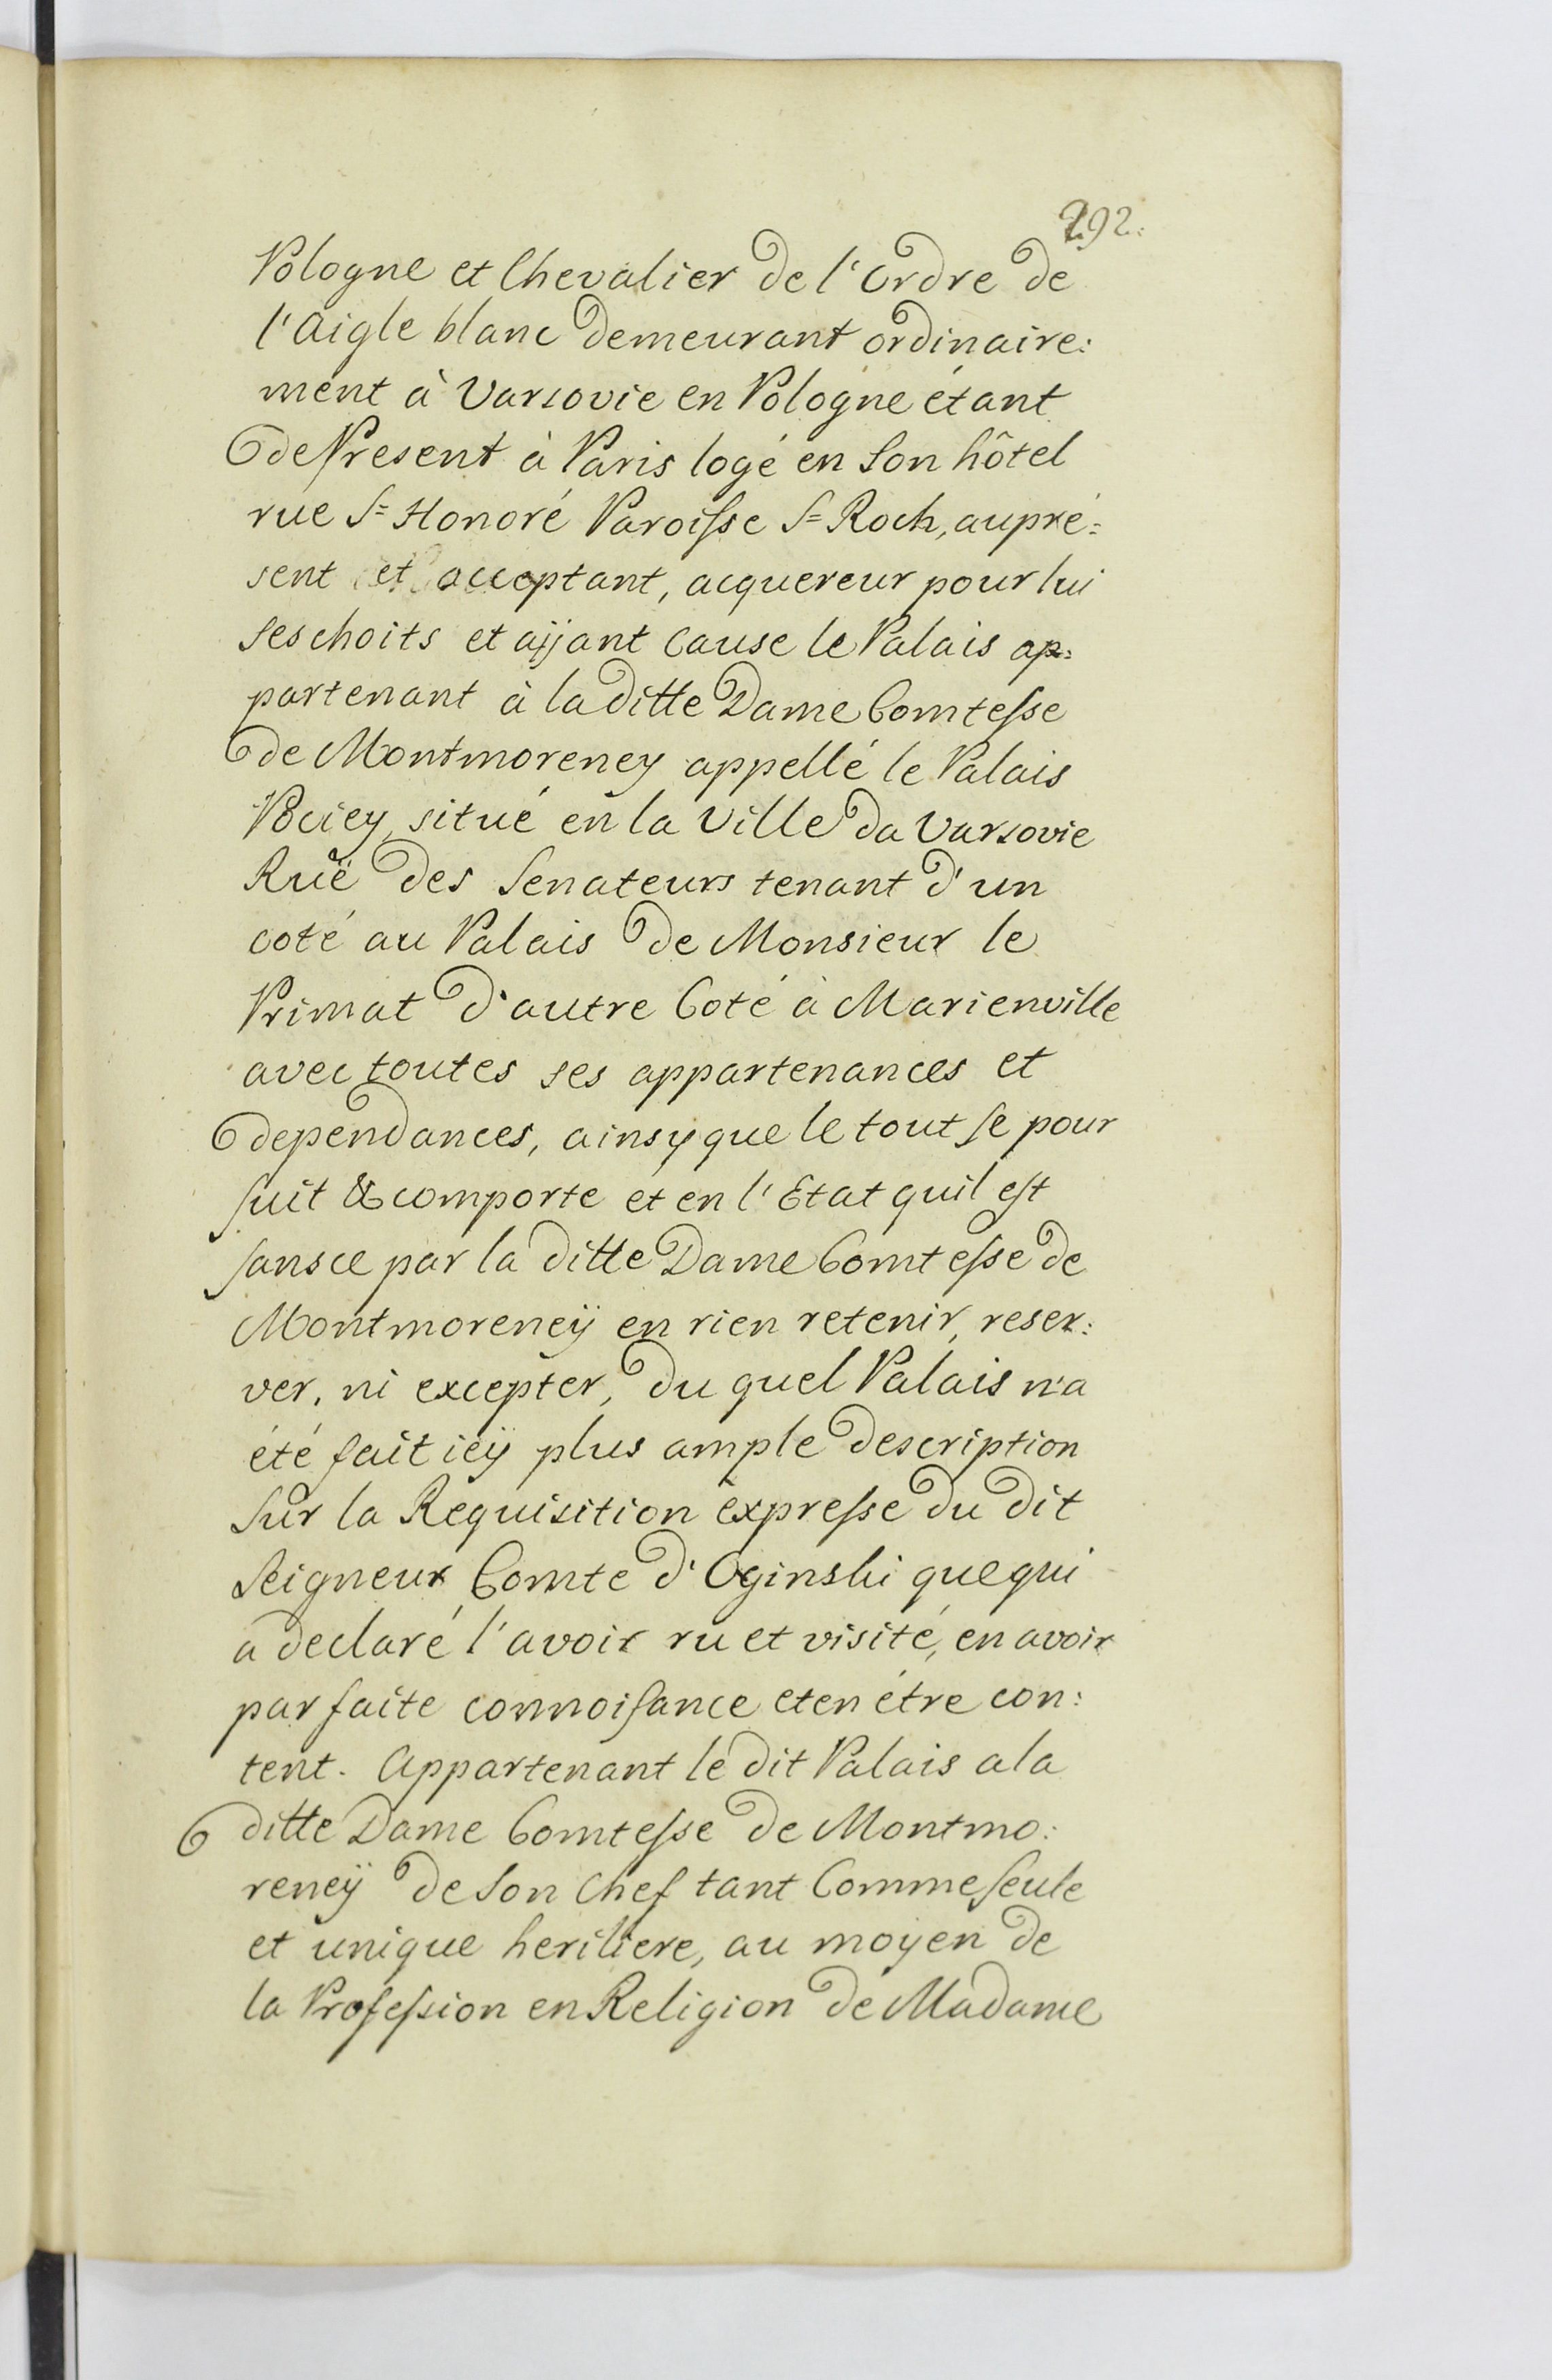 292.
Pologne et Chevalier de l'Ordre de
l'Aigle blanc demeurant ordinaire:
ment à Varsovie en Pologne étant
de Present à Paris logé en Son hôtel
rue S= Honoré Paroisse S= Roch, aupré=
sent et acceptant, acquereur pour lui
ses choits et aÿant Cause le Palais ap=
partenant à la ditte Dame Comtesse
de Montmoreney appellé le Palais
Pociey, situé en la Ville da Varsovie
Ruë des Senateurs tenant d'un
coté au Palais de Monsieur le
Primat d'autre Coté à Marienville
avec toutes ses appartenances et
dependances, ainsy que le tout se pour
suit & comporte et en l'Etat quil est
sansce par la ditte Dame Comtesse de
Montmoreneÿ en rien retenir, reser:
ver, ni excepter, du quel Palais n'a
été fait icÿ plus ample description
Sur la Requisition expresse du dit
Seigneur Comte d'Oginski que qui
a declaré l'avoir ru et visité, en avoir
parfaite connoisance et en étre con:
tent. Appartenant le dit Palais a la
ditte Dame Comtesse de Montmo:
reneÿ de Son Chef tant Comme Seule
et unique heritiere, au moyen de
la Profession en Religion de Madame